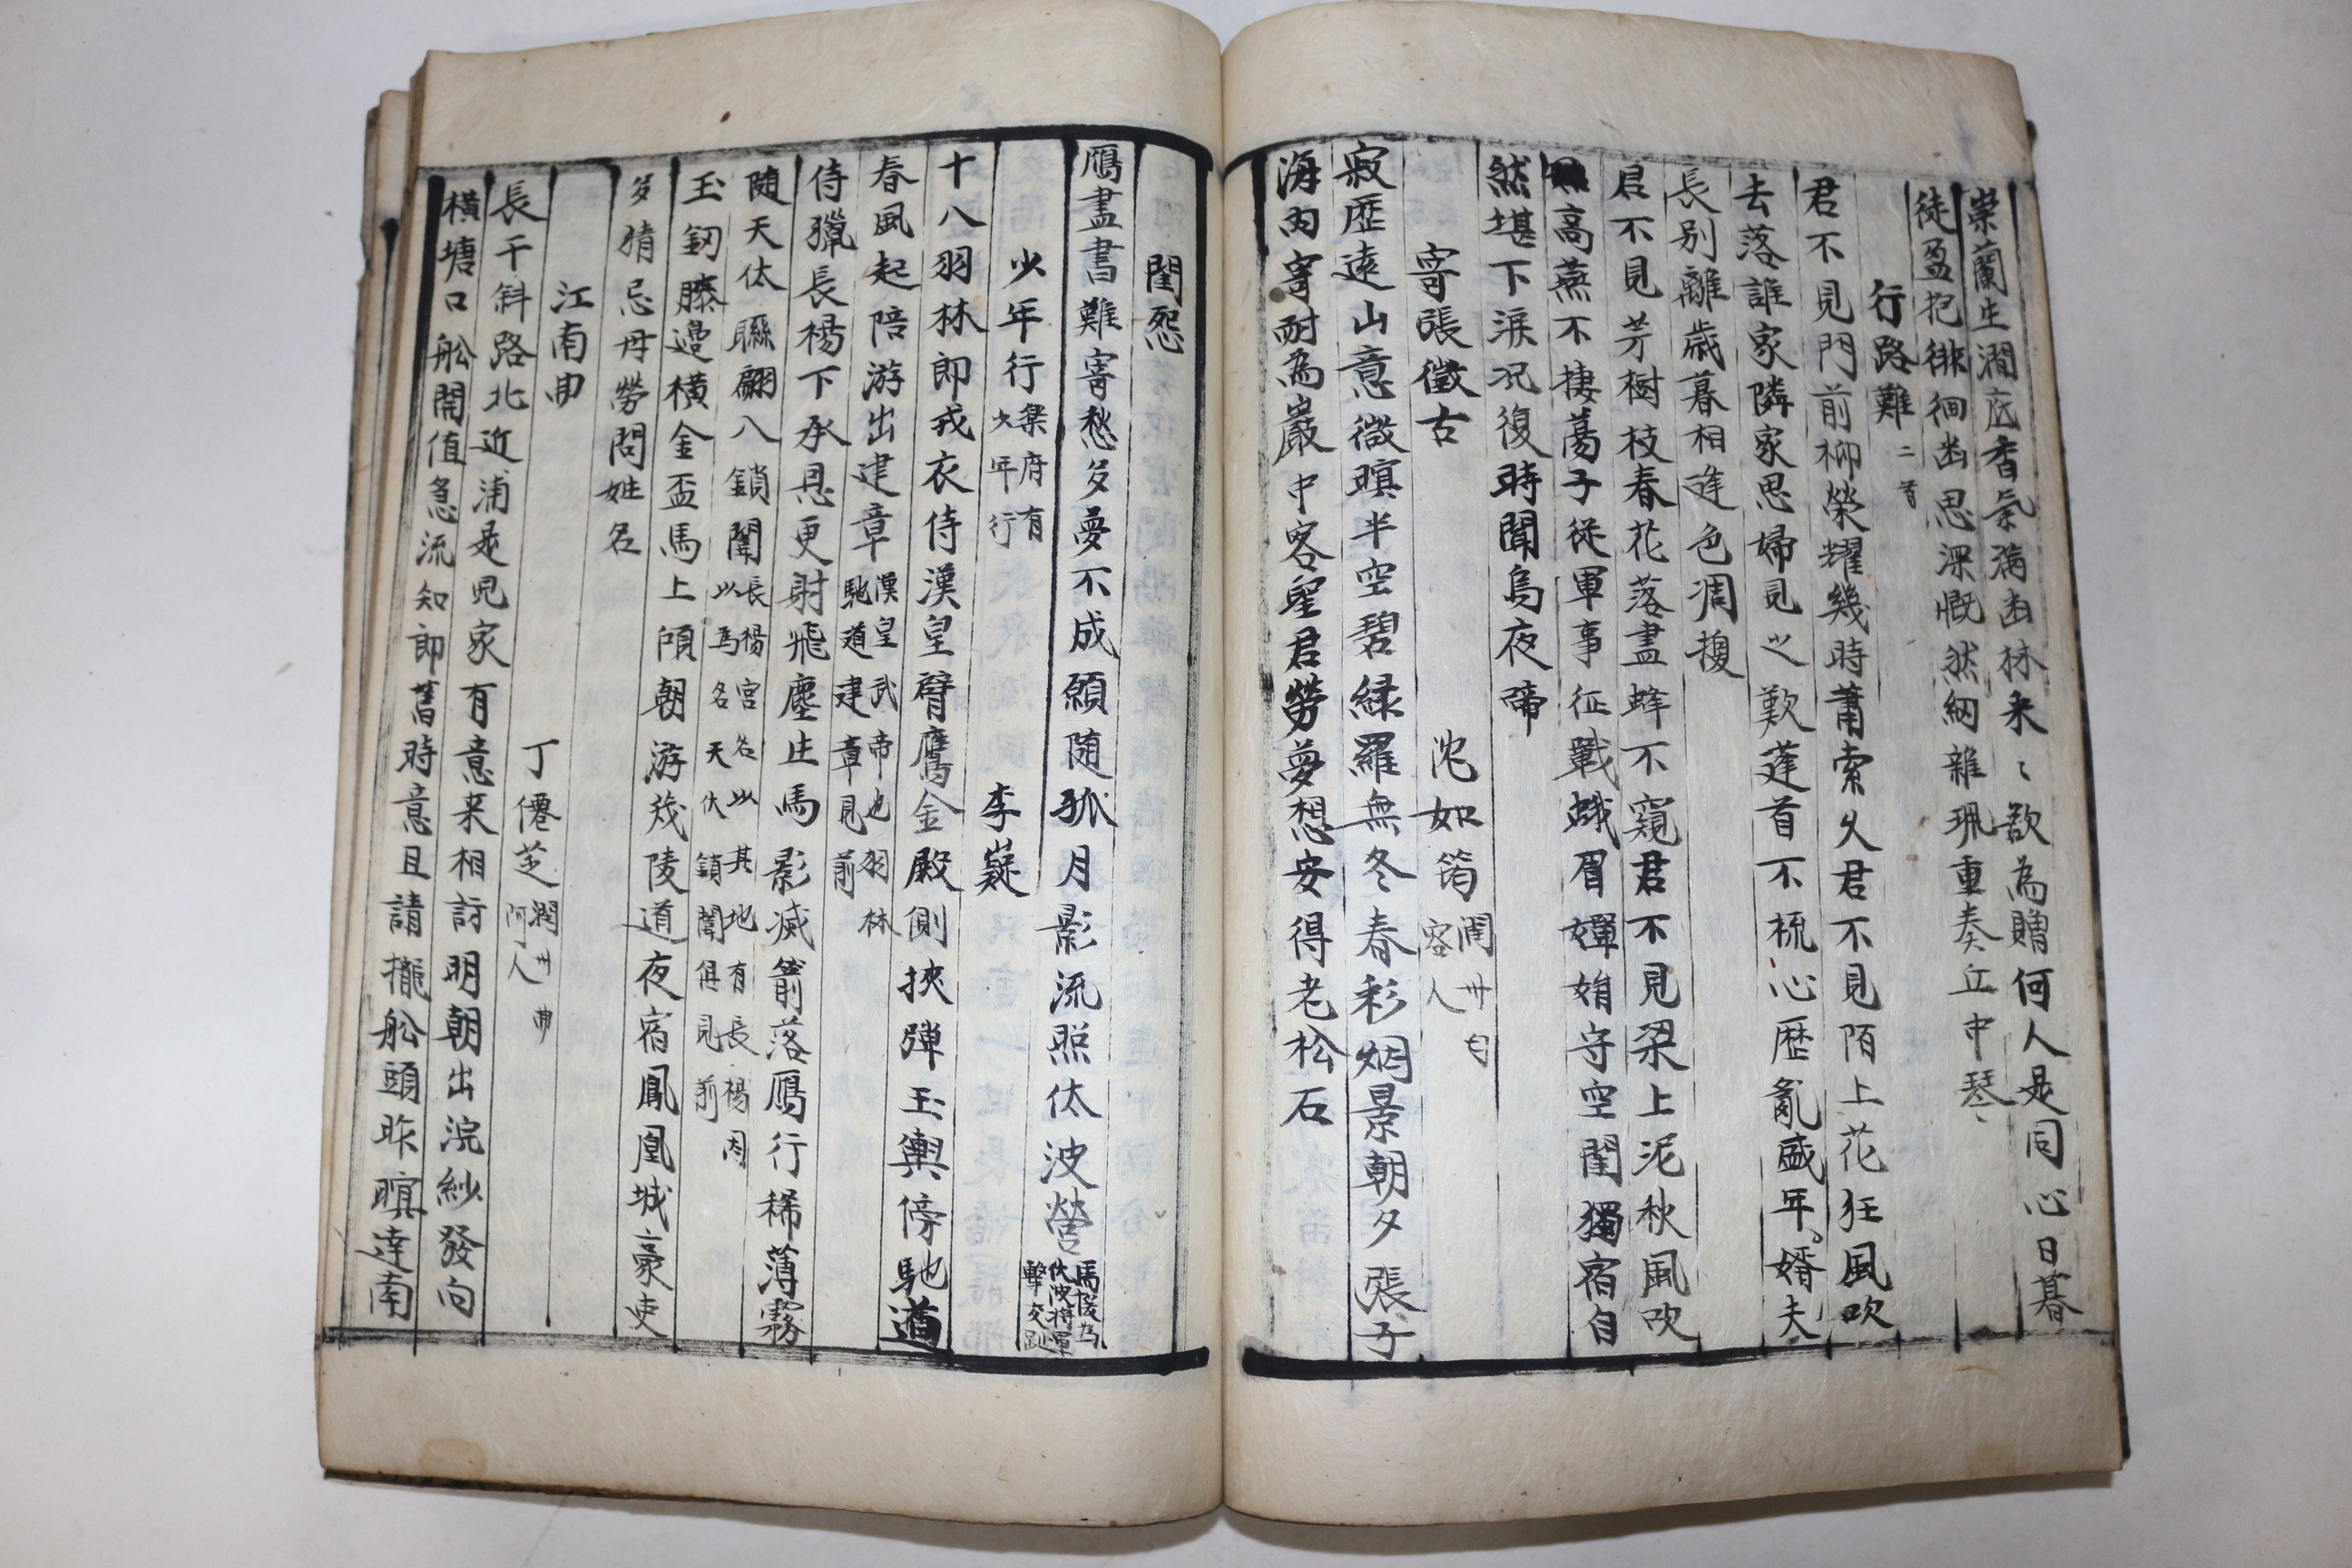 崇蘭生澗底香氣滿幽林来〻欲為贈何人是同心日暮
徒盈抱徘徊幽思深慨然紉雜珮重奏丘中琴
行路難 二首
君不見門前柳榮耀幾時蕭索久君不見陌上花狂風吹
去落誰家隣家思婦見之歎蓬首不梳心歷亂盛年婿夫
長別離歲暮相逢色凋換
君不見芳樹枝春花落盡蜂不窺君不見梁上泥秋風吹
高燕不捿蕩子從軍事征戰蛾眉嬋娟守空閨獨宿自
然堪下淚况復時聞烏夜啼
寄張徵古 沈如筠 閏州句容人
寂歷遠山意微暝半空碧綠羅無冬春彩烟景朝夕張子
海內竒耐為巖中客聖君勞夢想安得老松石
閨怨
鴈盡書難寄愁多夢不成願隨孤月影流照伏波營 馬援為伏波將軍擊交趾
少年行 樂府有少年行 李嶷
十八羽林郎戎衣侍漢皇臂鷹金殿側挾彈玉輿傍馳道
春風起陪游出建章 漢皇武帝也羽林馳道建章見前
侍獵長楊下承恩更射飛塵生馬影滅箭落鴈行稀薄霧
隨天仗聯翩入鎖闈 長楊宮名以其地有長楊因以爲名天仗鎖闈俱見前
玉劒膝邊橫金盃馬上傾朝游茂陵道夜宿鳳凰城豪吏
多猜忌毋勞問姓名
江南曲
丁僊芝 潤州曲阿人
長干斜路北近浦是兒家有意来相訪明朝出浣紗發向
橫塘口舩開值急流知郎舊時意且請攏舩頭昨暝逹南